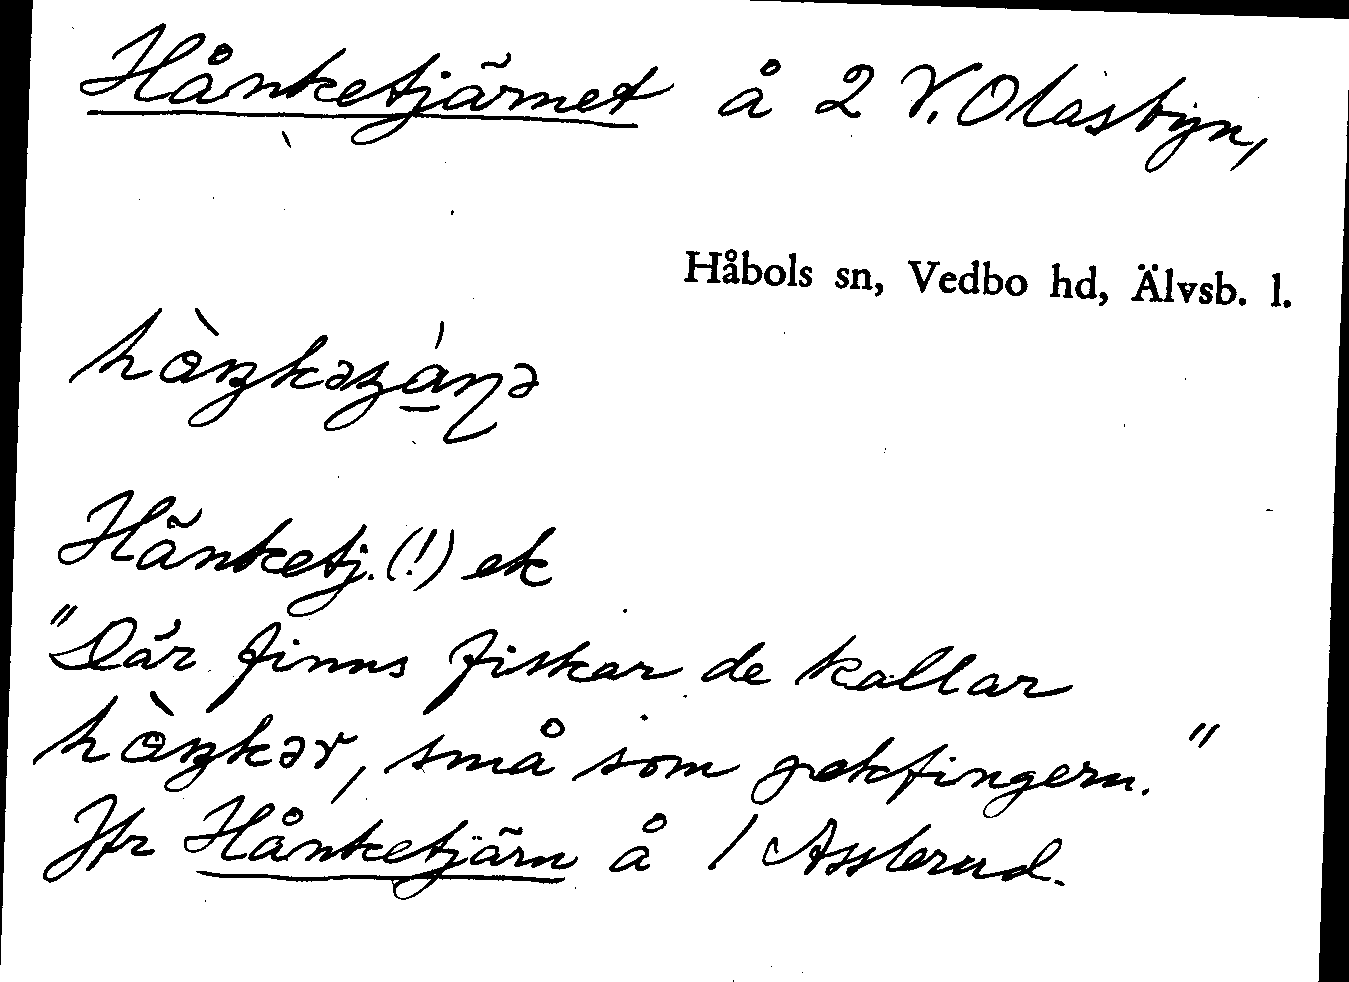 Hånketjärnet å 2 V. Olasbyn,
Håbols sn, Vedbo hd, Älvsb. l.
Hänketj. (!) ek
"Där finns fiskar de kallar
små som pekfingern."
Jfr Hånketjärn å 1 Asslerud.